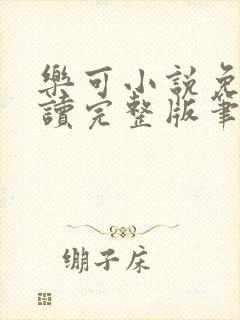 樂可小説免
讀完整版筆
绷子床